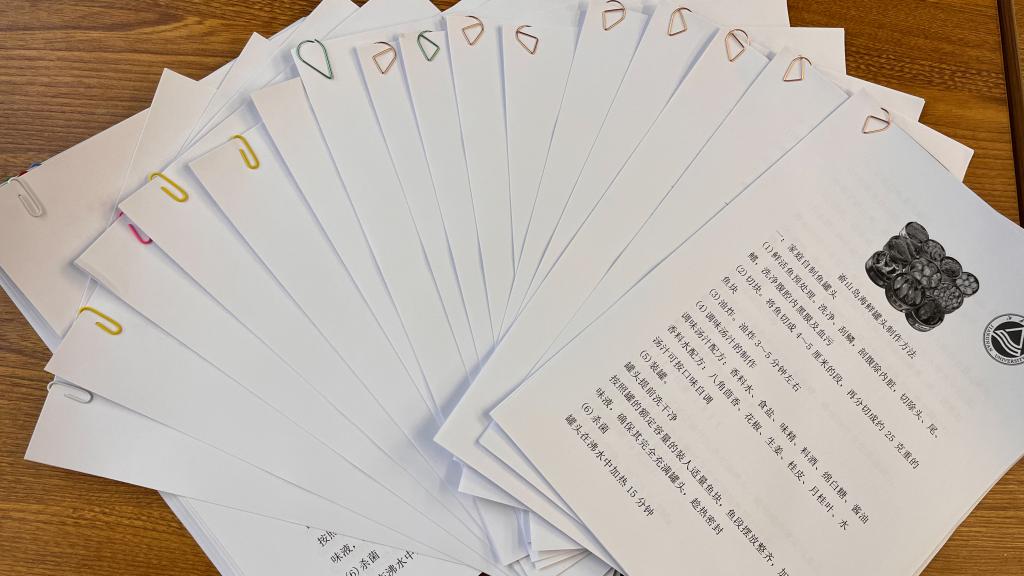 嵛山岛海鲜罐头制作方法
一：家庭自制鱼罐头
(1) 鲜活鱼预处理。洗净、刮鳞，剖腹除内脏，切除头、尾、
鳍，洗净腹腔内黑膜及血污
(2) 切块、将鱼切成 4—5 厘米的段，再分切成约 25 克重的
鱼块
(3) 油炸。油炸 3—5 分钟左右
(4) 调味汤汁的制作
调味汤汁配方：香料水、食盐、味精、料酒、绵白糖、酱油
香料水配方：八角茴香、花椒、生姜、桂皮、月桂叶、水
汤汁可按口味自调
(5) 装罐。
罐头提前洗干净
按照罐的额定容量的装入适量鱼块，鱼段摆放整齐，加
味液，确保其完全充满罐头，趁热密封
(6) 杀菌
罐头在沸水中加热 15 分钟
UNIVERSITY
按照
味液，
(6) 杀菌
在沸水中